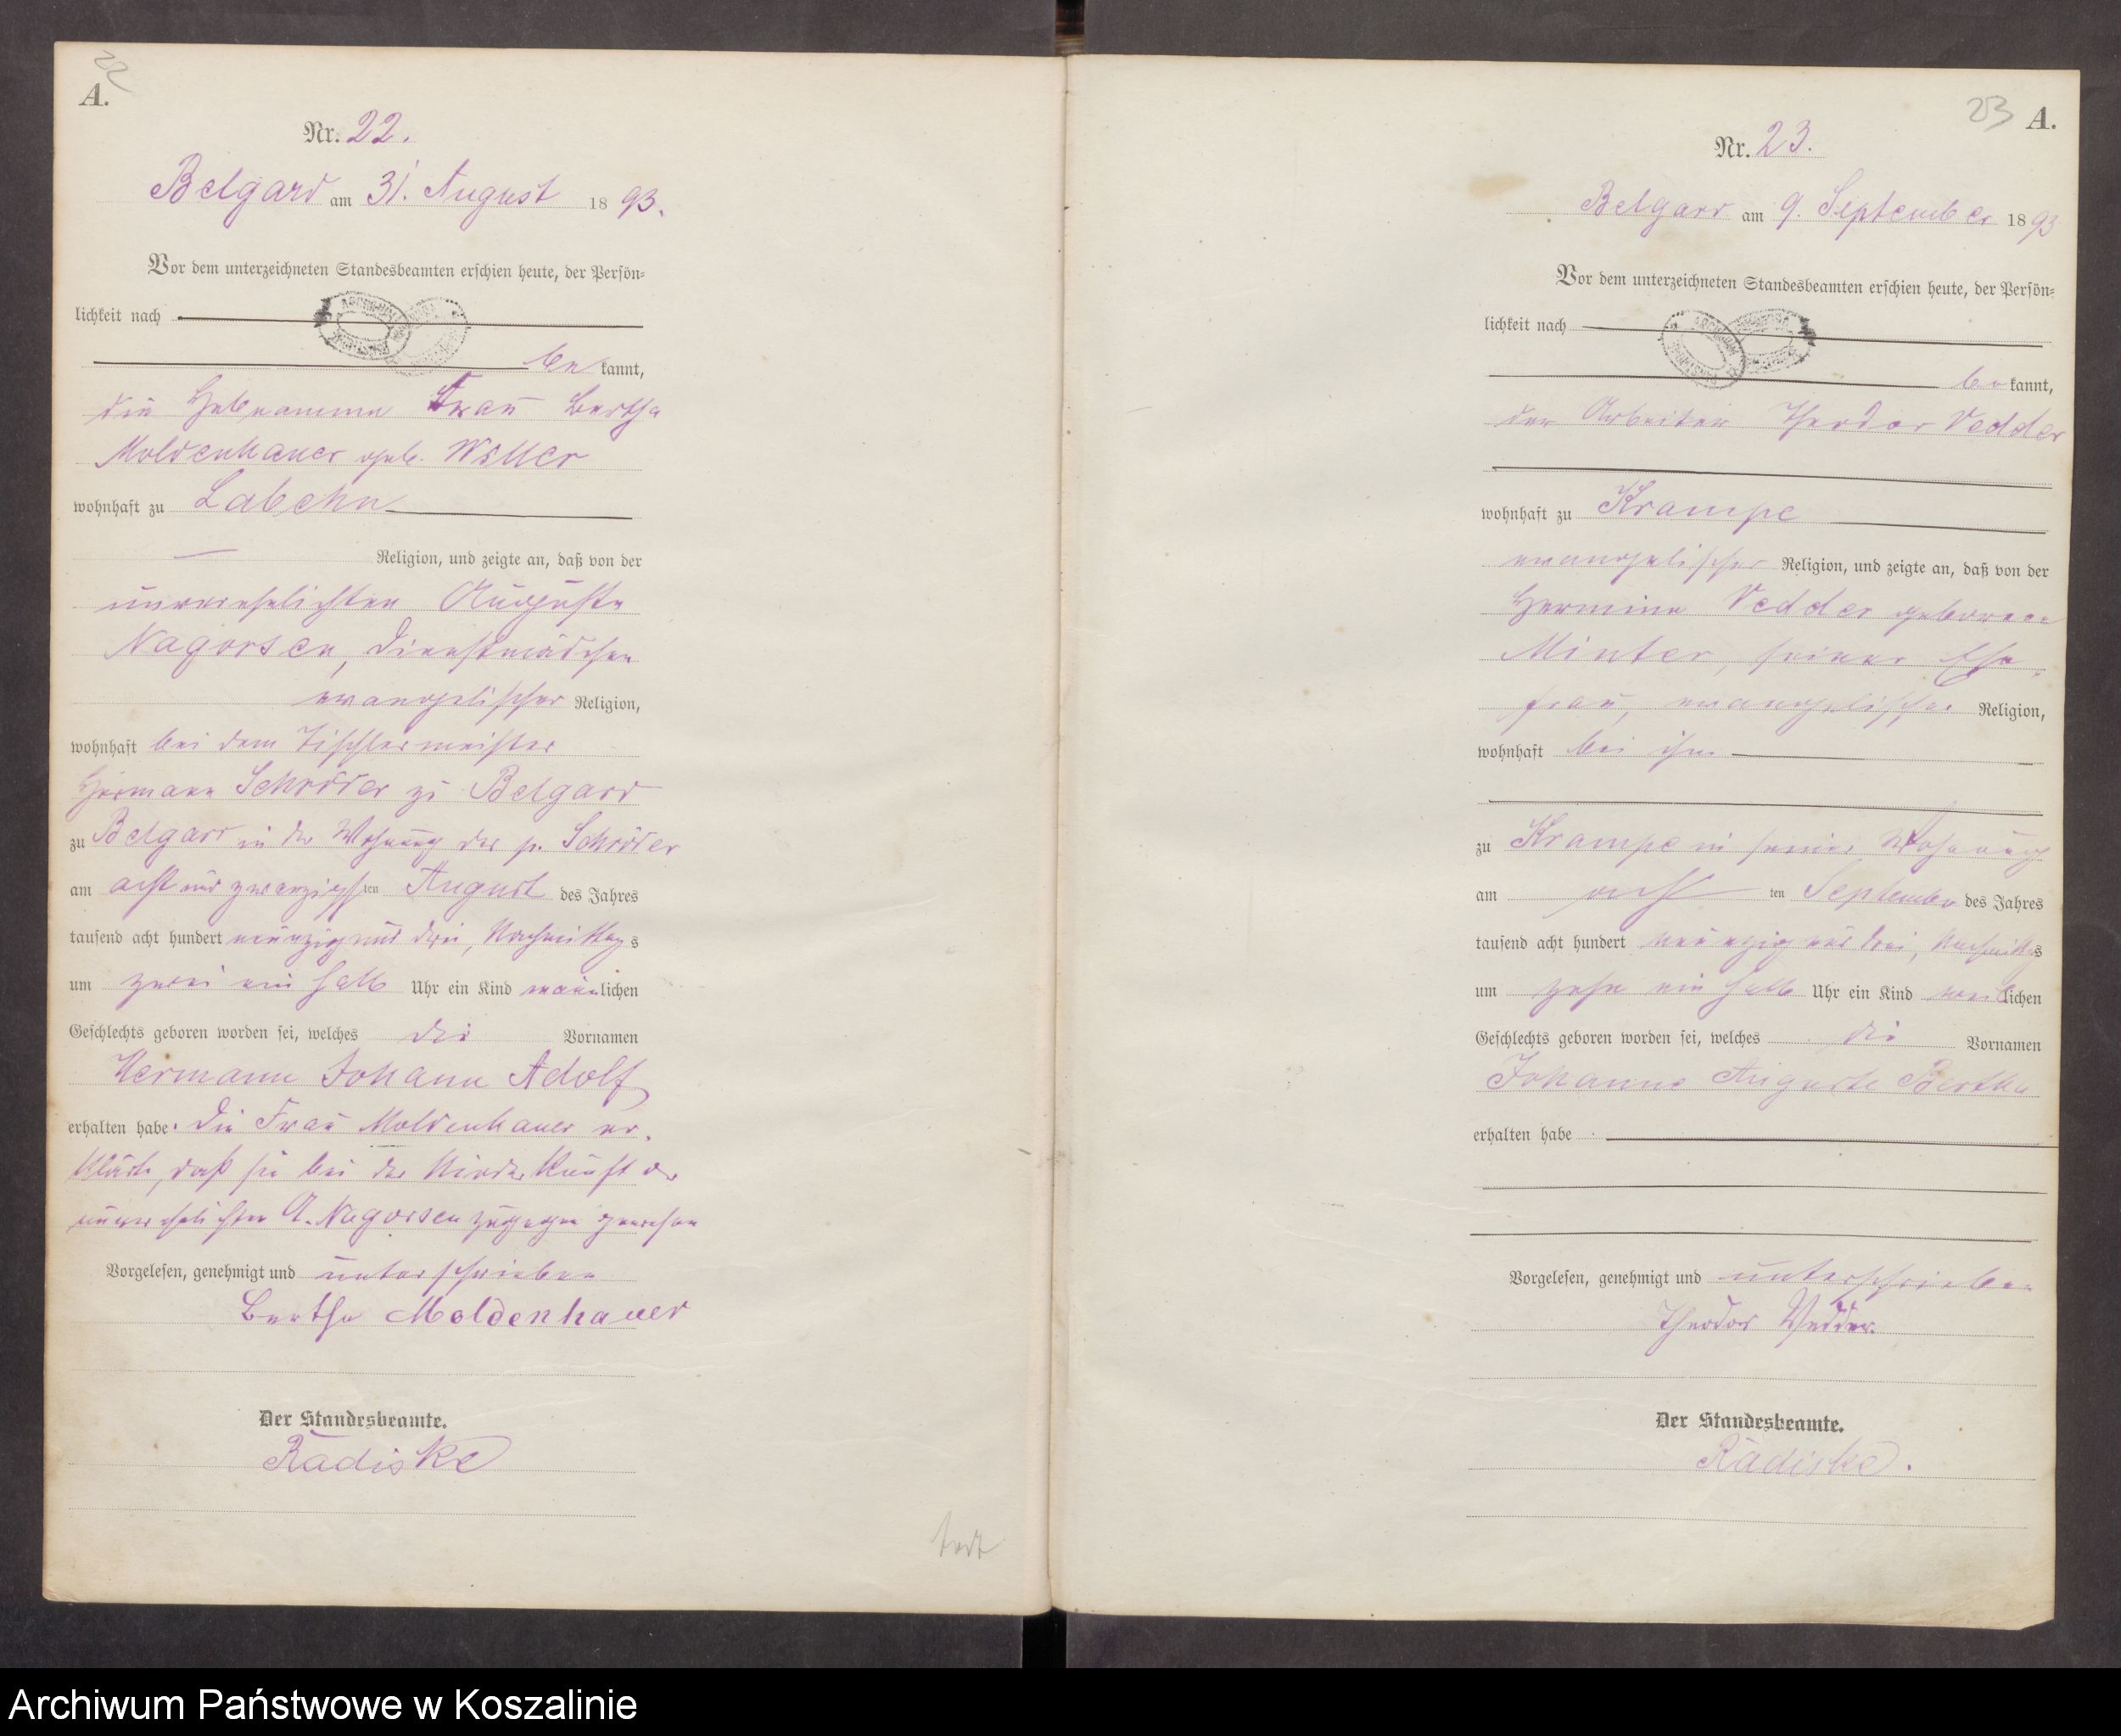 22
A.
Nr. 22.
Belgard am 31. August 1893.
Vor dem unterzeichneten Standesbeamten erschien heute, der Persön-
lichkeit nach
bekannt,
die Hebeamme Frau Bertha
Moldenhauer geb. Witter
wohnhaft zu Labehn
Religion, und zeigte an, daß von der
unverehelichten Auguste
Nagorsen, Dienstmädchen
evangelischer Religion,
wohnhaft bei dem Tischlermeister
Hermann Schröder zu Belgard
zu Belgard in der Wohnung des p. Schröder
am acht und zwanzigsten August des Jahres
tausend acht hundert neunzig und drei, Nachmittags
um zwei ein halb Uhr ein Kind männlichen
Geschlechts geboren worden sei, welches die Vornamen
Hermann Johann Adolf
erhalten habe. Die Frau Moldenhauer er-
klärte, daß sie bei der Niederkunft der
unverehelichten A. Nagorsen zugegen gewesen
Vorgelesen, genehmigt und unterschrieben
Bertha Moldenhauer
Der Standesbeamte.
Radiske
23 A.
Nr. 23.
Belgard am 9. September 1893
Vor dem unterzeichneten Standesbeamten erschien heute, der Persön-
lichkeit nach
bekannt,
der Arbeiter Theodor Vedder
wohnhaft zu Krampe
evangelischer Religion, und zeigte an, daß von der
Hermine Vedder geborene
Minter, seiner Ehe-
frau, evangelischer Religion,
wohnhaft bei ihm
zu Krampe in seiner Wohnung
am achten September des Jahres
tausend acht hundert neunzig und drei, Nachmittags
um zehn ein halb Uhr ein Kind weiblichen
Geschlechts geboren worden sei, welches die Vornamen
Johanne Auguste Bertha
erhalten habe
Vorgelesen, genehmigt und unterschrieben
Theodor Vedder.
Der Standesbeamte.
Radiske.
Archiwum Państwowe w Koszalinie